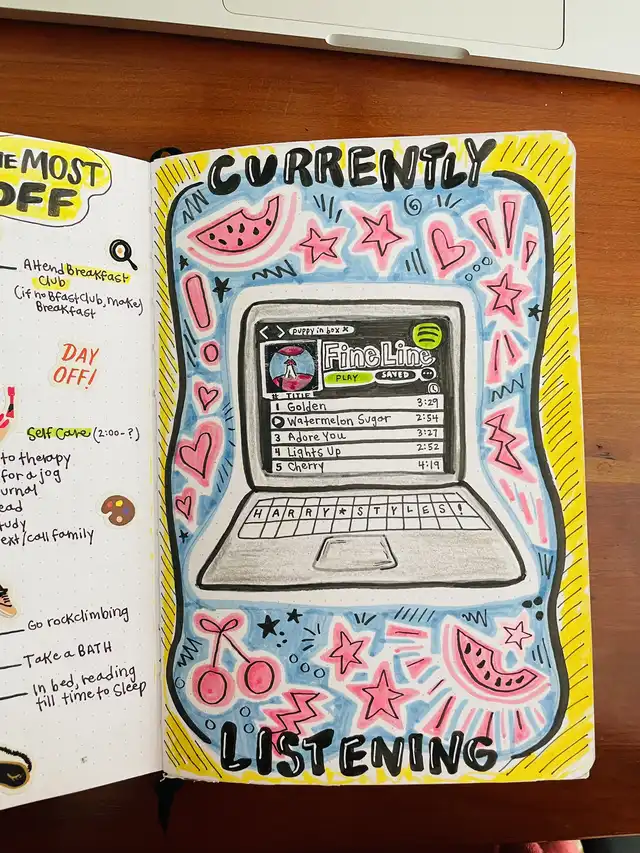 MOST
OFF
Attend Breakfast
Club
(if no Bfast Club, make)
Breakfast
DAY
OFF!
Self Care (2:00-?)
to therapy
for a jog
urnal
ead
tudy
ext/call family
Go rockclimbing
Take a BATH
In bed, reading
till time to sleep
CURRENTLY
puppy in box
Fine Line
PLAY SAVED
# TITLE
1 Golden 3:29
Watermelon Sugar 2:54
3 Adore You 3:27
4 Lights Up 2:52
5 Cherry 4:19
HARRY★STYLES!
LISTENING